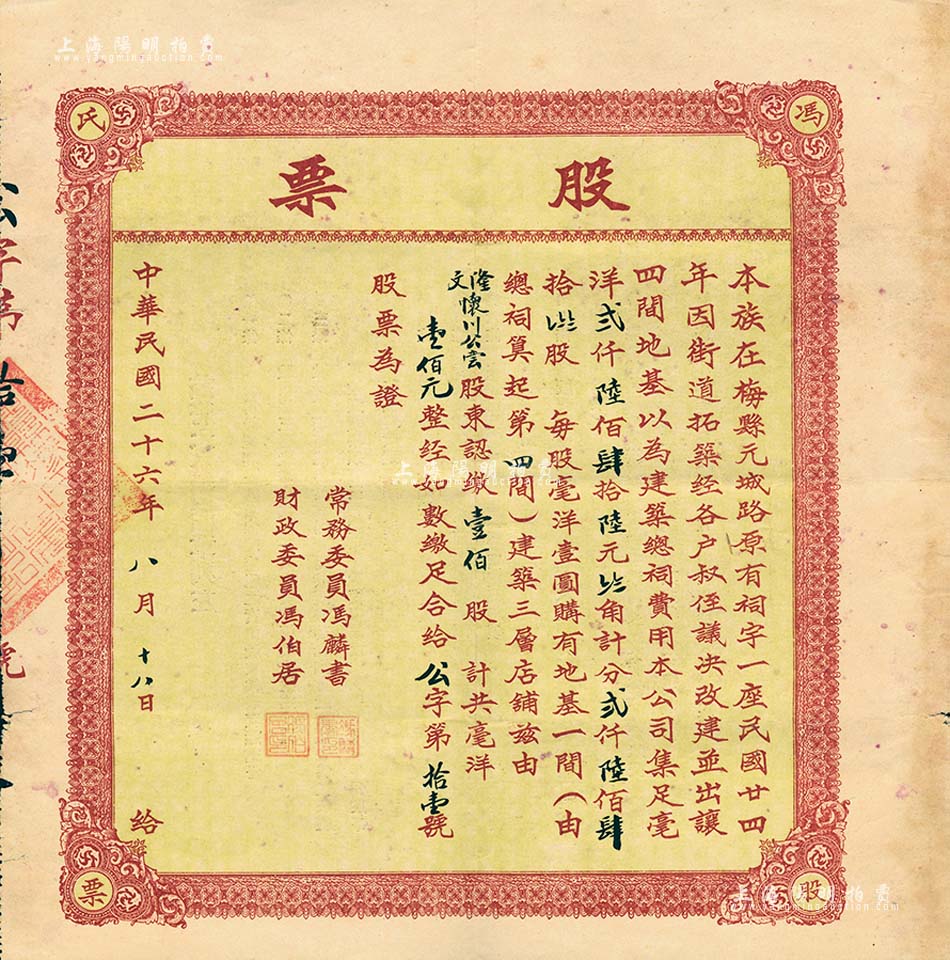 上海陽明拍賣
www.yangmingauction.com
馮氏
股票
股票
本族在梅縣元城路原有祠宇一座民國廿四
年因街道拓築经各户叔侄議决改建並出讓
四間地基以為建築總祠費用本公司集足毫
洋弍仟陸佰肆拾陸元 角計分弍仟陸佰肆
拾 股 每股毫洋壹圓購有地基一間（由
總祠算起第四間）建築三層店舖兹由
隆文懷川公雲股東認繳壹佰 股 計共毫洋
壹佰元整经如數繳足合給 公字第 拾壹號
股票為證
常務委員馮麟書
財政委員馮伯居
中華民國二十六年 八月 十八日 給
公字第拾壹號
上海陽明拍賣
www.yangmingauction.com
上海陽明拍賣
www.yangmingauction.com